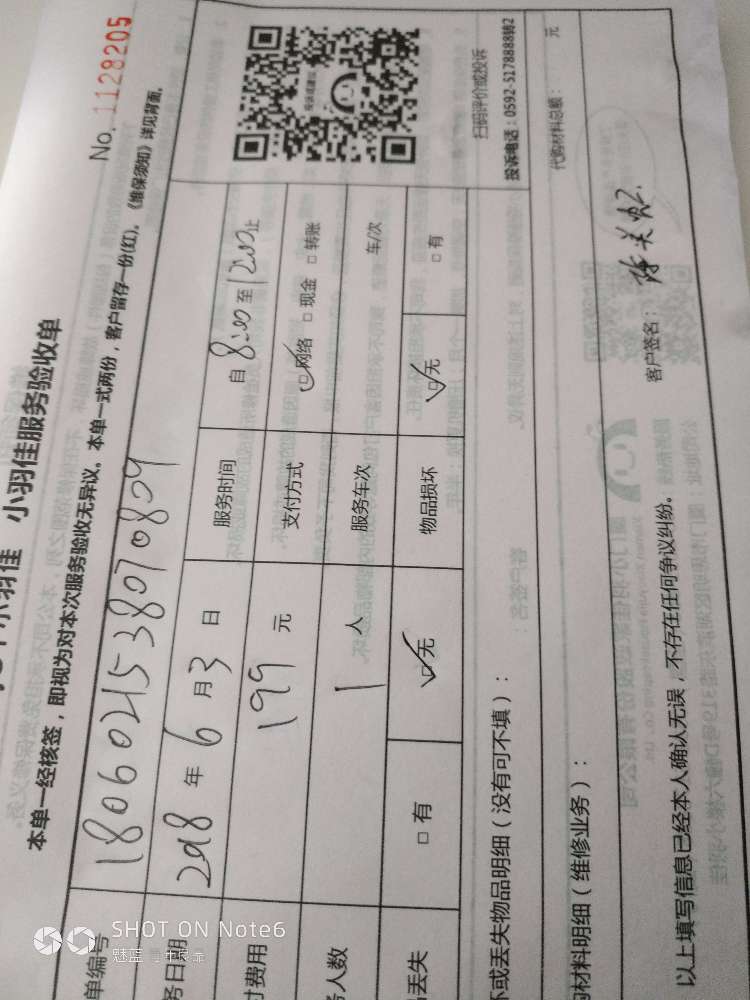 小羽佳 小羽佳服务验收单
No. 1128205
本单一经核签，即视为对本次服务验收无异议。本单一式两份，客户留存一份(红)。《维保须知》详见背面。
单编号 1806021538070809
务日期 2018 年 6 月 3 日 服务时间 自 8:00 至 12:00 止
付费用 199 元 支付方式 ☑网络 □现金 □转账
务人数 1 人 服务车次 车/次
丢失 □有 ☑无 物品损坏 ☑无 □有
扫码评价或投诉
投诉电话：0592-5178888转2
坏或丢失物品明细（没有可不填）：
材料明细（维修业务）：
代购材料总额： 元
以上填写信息已经本人确认无误，不存在任何争议纠纷。
客户签名：
SHOT ON Note6